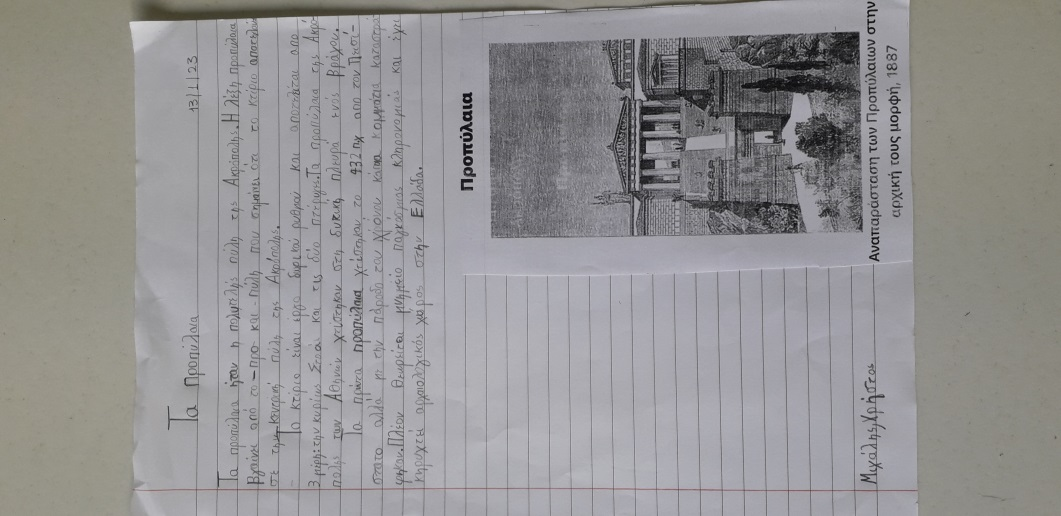 Τα Προπύλαια
13/1/23
Τα προπύλαια ήταν η πολυτελής πύλη της Ακρόπολης. Η λέξη προπύλαια
βγαίνει από το - προ και - πύλη που σημαίνει ότι το κτίριο αποτελού
σε την κεντρική πύλη της Ακρόπολης.
Το κτίριο είναι έργο δωρικού ρυθμού και αποτελείται από
3 μέρη: την κυρίως Στοά και τις δύο πτέρυγες. Τα προπύλαια της Ακρό-
πολης των Αθηνών χτίστηκαν στη δυτική πλευρά ενός βράχου.
Τα πρώτα προπύλαια χτίστηκαν το 432 πχ απο τον
στατο αλλά με την πάροδο του χρόνου κάποια κομμάτια καταστρά
φηκαν. Πλέον θεωρείται μνημείο παγκόσμιας κληρονομιάς και έχει
κηρυχτεί αρχαιολογικός χώρος στην Ελλάδα.
Προπύλαια
Αναπαράσταση των Προπύλαιων στην
αρχική τους μορφή, 1887
Μιχάλης, Χρήστος